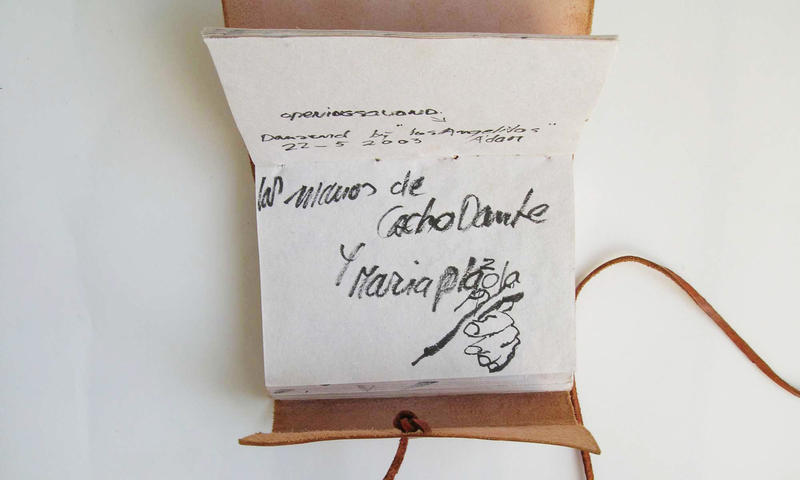 openingsavond.
Dansend bij "los Angelitos"
22-5 2003 A'dam
las manos de
Cacho Dante
y
Maria plazola